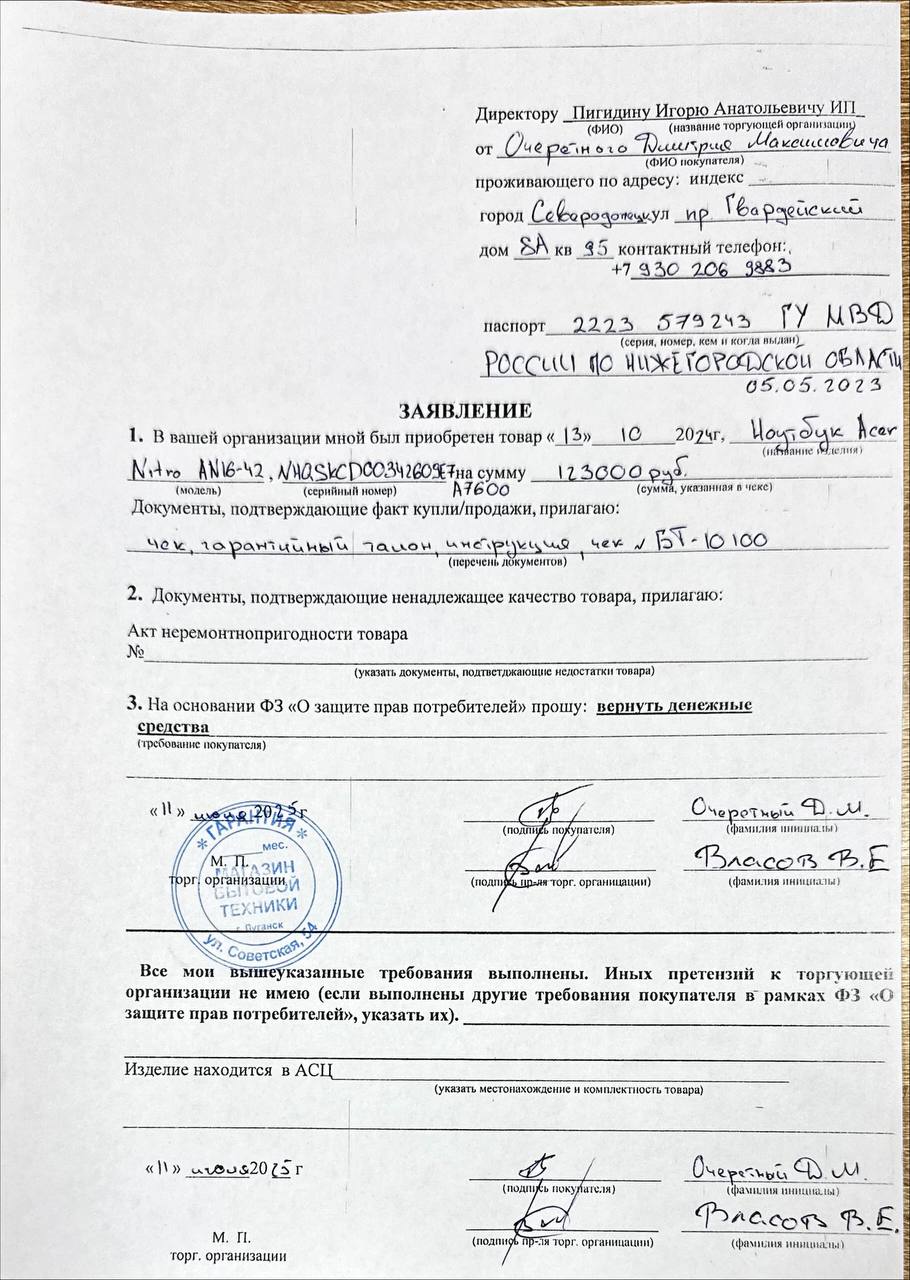 Директору Пигидину Игорю Анатольевичу ИП
(ФИО) (название торгующей организации)
от Очеретного Дмитрия Максимовича
(ФИО покупателя)
проживающего по адресу: индекс
город Северодонецк ул пр. Гвардейский
дом 8А кв 95 контактный телефон:
+7 930 206 9883
паспорт 2223 579243 ГУ МВД
(серия, номер, кем и когда выдан)
РОССИИ ПО НИЖЕГОРОДСКОЙ ОБЛАСТИ
05.05.2023
ЗАЯВЛЕНИЕ
1. В вашей организации мной был приобретен товар «13» 10 2024г, Ноутбук Acer
(название изделия)
Nitro AN16-42, NHQSKCD00342609E7 на сумму 123000 руб.
(модель) (серийный номер) A7600 (сумма, указанная в чеке)
Документы, подтверждающие факт купли/продажи, прилагаю:
чек, гарантийный талон, инструкция, чек № БТ-10100
(перечень документов)
2. Документы, подтверждающие ненадлежащее качество товара, прилагаю:
Акт неремонтнопригодности товара
№
(указать документы, подтветджающие недостатки товара)
3. На основании ФЗ «О защите прав потребителей» прошу: вернуть денежные
средства
(требование покупателя)
«11» июня 2025г Очеретный Д.М.
(подпись покупателя) (фамилия инициалы)
М. П. Власов В.Е
торг. организации (подпись пр-ля торг. органицации) (фамилия инициалы)
* ГАРАНТИЯ *
мес.
МАГАЗИН
БЫТОВОЙ
ТЕХНИКИ
г. Луганск
ул. Советская, 54
Все мои вышеуказанные требования выполнены. Иных претензий к торгующей
организации не имею (если выполнены другие требования покупателя в рамках ФЗ «О
защите прав потребителей», указать их).
Изделие находится в АСЦ
(указать местонахождение и комплектность товара)
«11» июня 2025 г Очеретный Д.М.
(подпись покупателя) (фамилия инициалы)
Власов В.Е.
М. П.
торг. организации (подпись пр-ля торг. органицации) (фамилия инициалы)